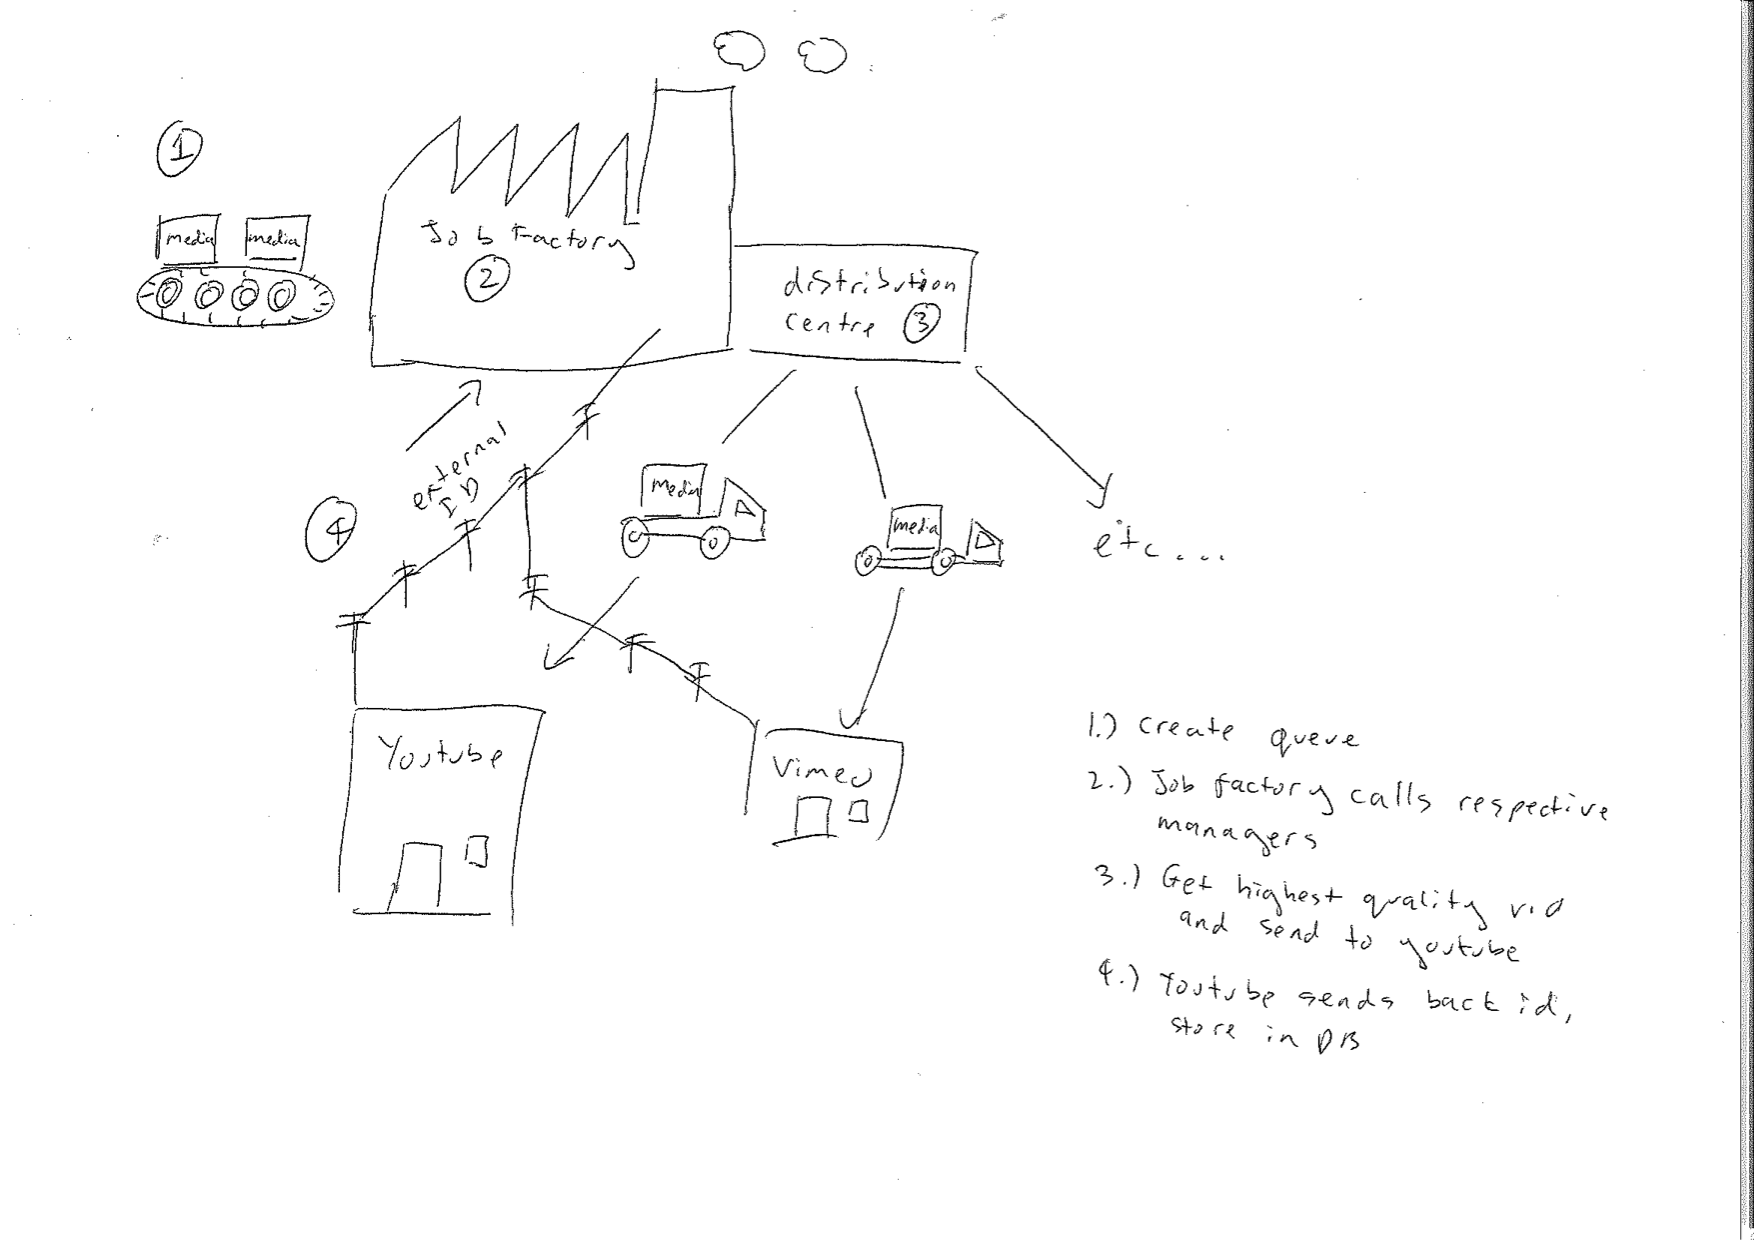 1
media
media
Job Factory
2
distribution
centre 3
external
ID
4
media
media
etc...
Youtube
Vimeo
1.) create queue
2.) Job factory calls respective
managers
3.) Get highest quality vid
and send to youtube
4.) Youtube sends back id,
store in DB